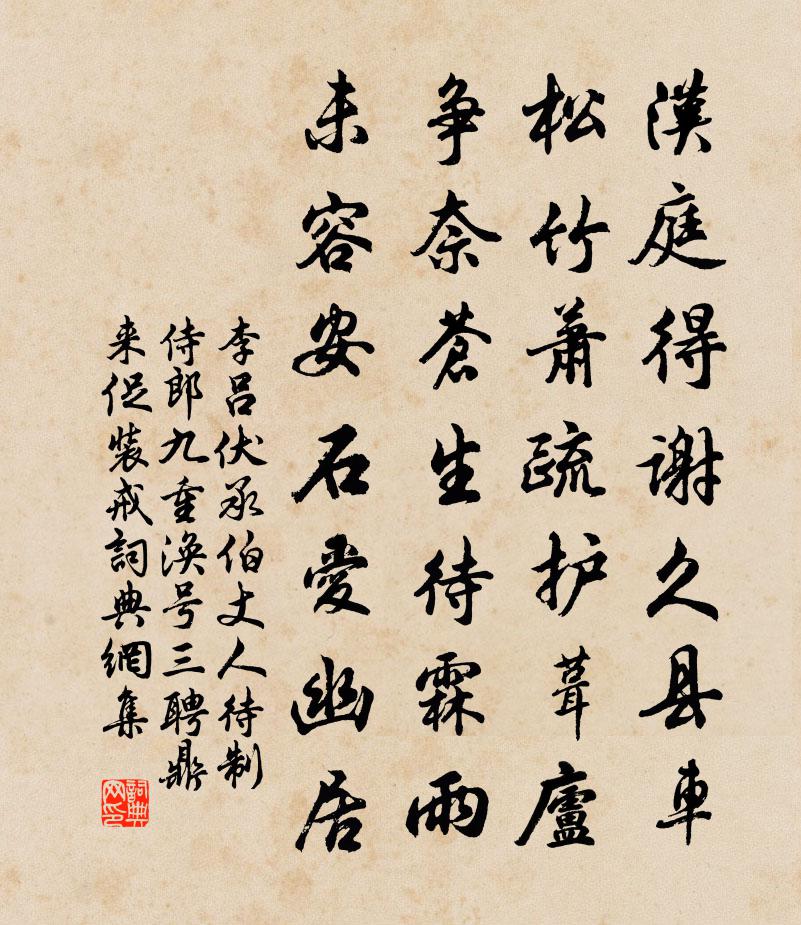 漢庭得谢久县車
松竹蕭疏护葺廬
争奈蒼生待霖雨
未容安石愛幽居
李吕伏承伯丈人待制
侍郎九重涣号三聘鼎
来促裝戒詞典網集
詞典网印